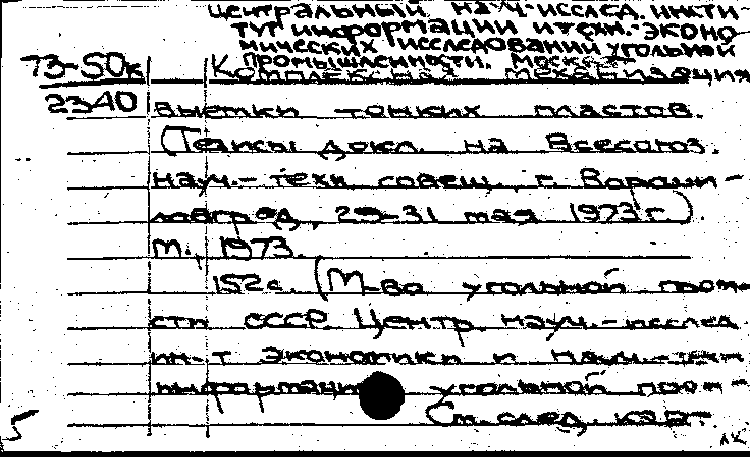 Центральный науч.-исслед. инсти-
тут информации и техн.-эконо
мических исследований угольной
промышленности. Москва
73-50к Комплексная механизация
2340 выемки тонких пластов.
(Тезисы докл. на Всесоюз.
науч.-техн. совещ., г. Вороши-
ловград, 29-31 мая 1973 г).
М., 1973.
152 с. (М-во угольной пром-
сти СССР. Центр. науч.-исслед
ин-т экономики и науч.-техн
информации угольной пром-
См. след. карт.
5